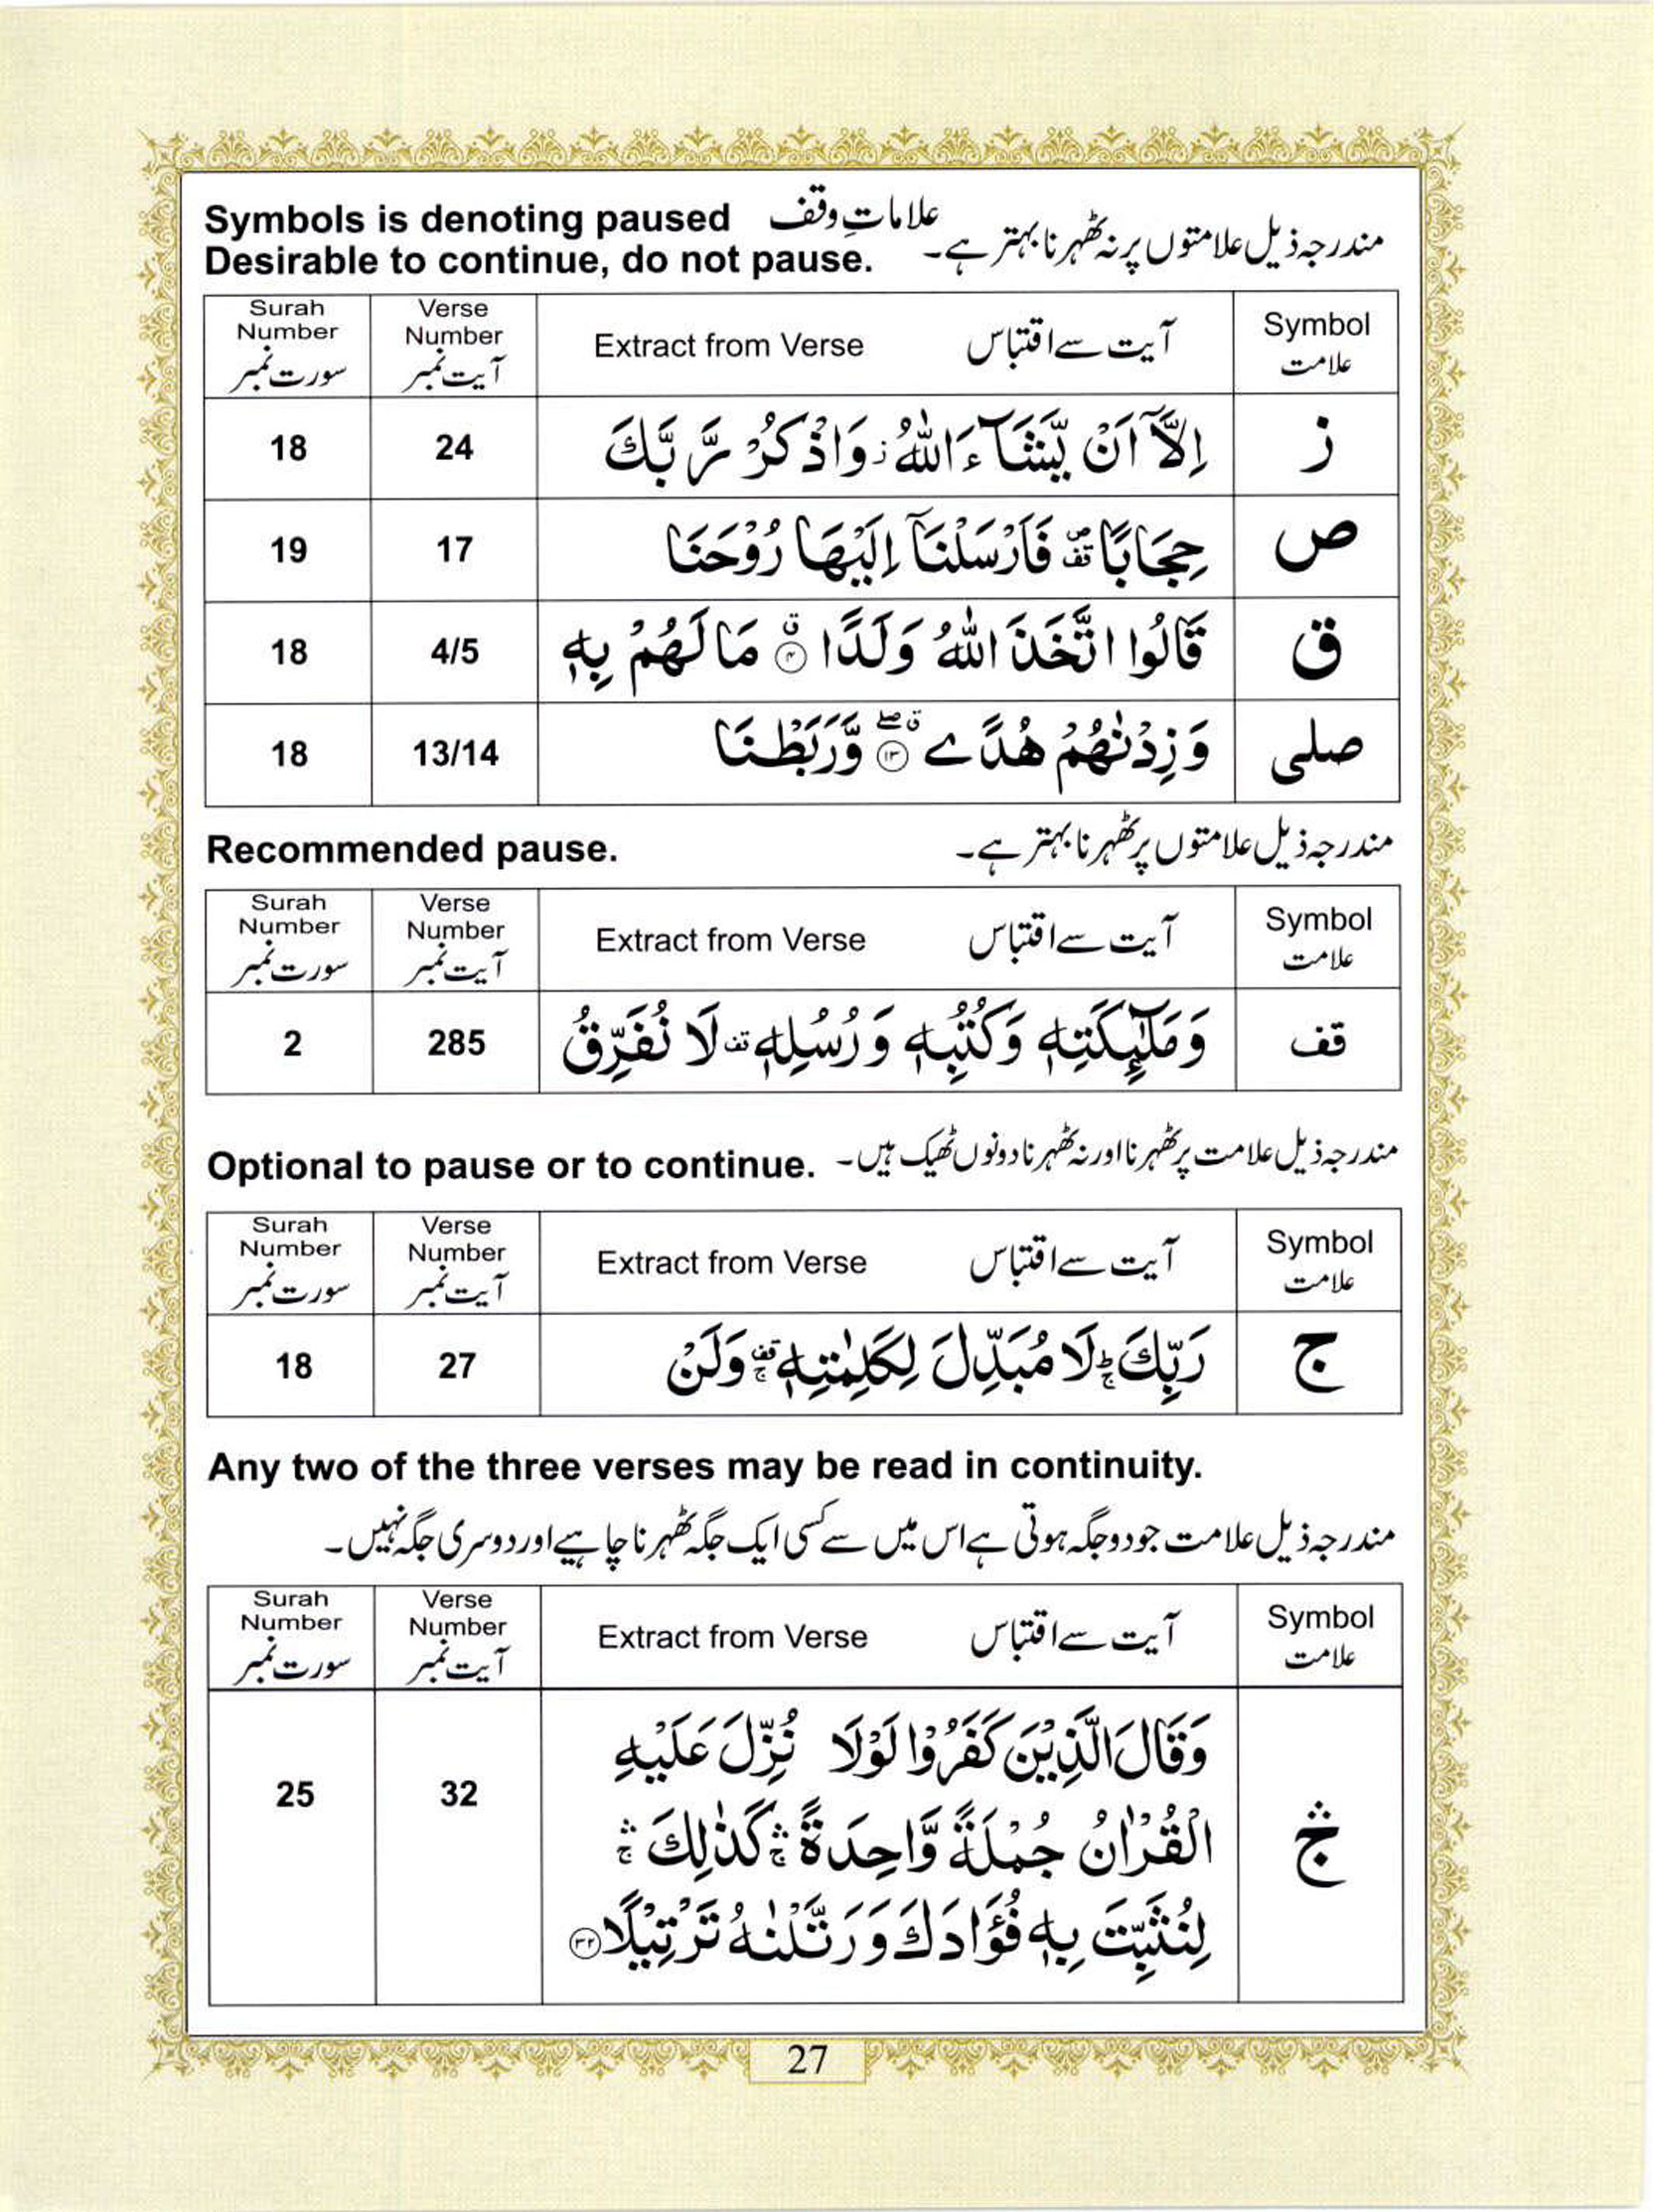 Symbols is denoting paused علاماتِ وقف
Desirable to continue, do not pause. مندرجہ ذیل علامتوں پر نہ ٹھہرنا بہتر ہے۔
Surah Number سورت نمبر | Verse Number آیت نمبر | Extract from Verse آیت سے اقتباس | Symbol علامت
18 | 24 | اِلَّاۤ اَنْ يَّشَآءَ اللّٰهُ ز وَاذْكُرْ رَّبَّكَ | ز
19 | 17 | حِجَابًا قف فَاَرْسَلْنَاۤ اِلَيْهَا رُوْحَنَا | ص
18 | 4/5 | قَالُوا اتَّخَذَ اللّٰهُ وَلَدًا ق ۴ مَا لَهُمْ بِهٖ | ق
18 | 13/14 | وَزِدْنٰهُمْ هُدًے ق صلے ۱۳ وَّرَبَطْنَا | صلی
Recommended pause. مندرجہ ذیل علامتوں پر ٹھہرنا بہتر ہے۔
Surah Number سورت نمبر | Verse Number آیت نمبر | Extract from Verse آیت سے اقتباس | Symbol علامت
2 | 285 | وَمَلٰٓئِكَتِهٖ وَكُتُبِهٖ وَرُسُلِهٖ قف لَا نُفَرِّقُ | قف
Optional to pause or to continue. مندرجہ ذیل علامت پر ٹھہرنا اور نہ ٹھہرنا دونوں ٹھیک ہیں۔
Surah Number سورت نمبر | Verse Number آیت نمبر | Extract from Verse آیت سے اقتباس | Symbol علامت
18 | 27 | رَبِّكَ ط ج لَا مُبَدِّلَ لِكَلِمٰتِهٖ قف ج وَلَنْ | ج
Any two of the three verses may be read in continuity.
مندرجہ ذیل علامت جو دو جگہ ہوتی ہے اس میں سے کسی ایک جگہ ٹھہرنا چاہیے اور دوسری جگہ نہیں۔
Surah Number سورت نمبر | Verse Number آیت نمبر | Extract from Verse آیت سے اقتباس | Symbol علامت
وَقَالَ الَّذِيْنَ كَفَرُوْا لَوْلَا نُزِّلَ عَلَيْهِ
25 | 32 | الْقُرْاٰنُ جُمْلَةً وَّاحِدَةً ۛۚ كَذٰلِكَ ۛۚ | ج ۛ
لِنُثَبِّتَ بِهٖ فُؤَادَكَ وَرَتَّلْنٰهُ تَرْتِيْلًا ۳۲
27